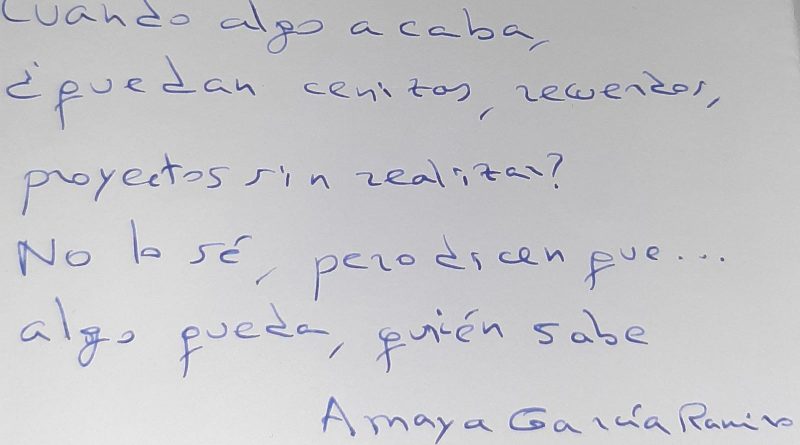 Cuando algo acaba,
¿quedan cenizas, recuerdos,
proyectos sin realizar?
No lo sé, pero dicen que...
algo queda, quién sabe
Amaya García Ramiro